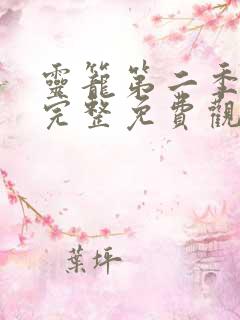 靈籠第二季
完整免費觀
葉坪